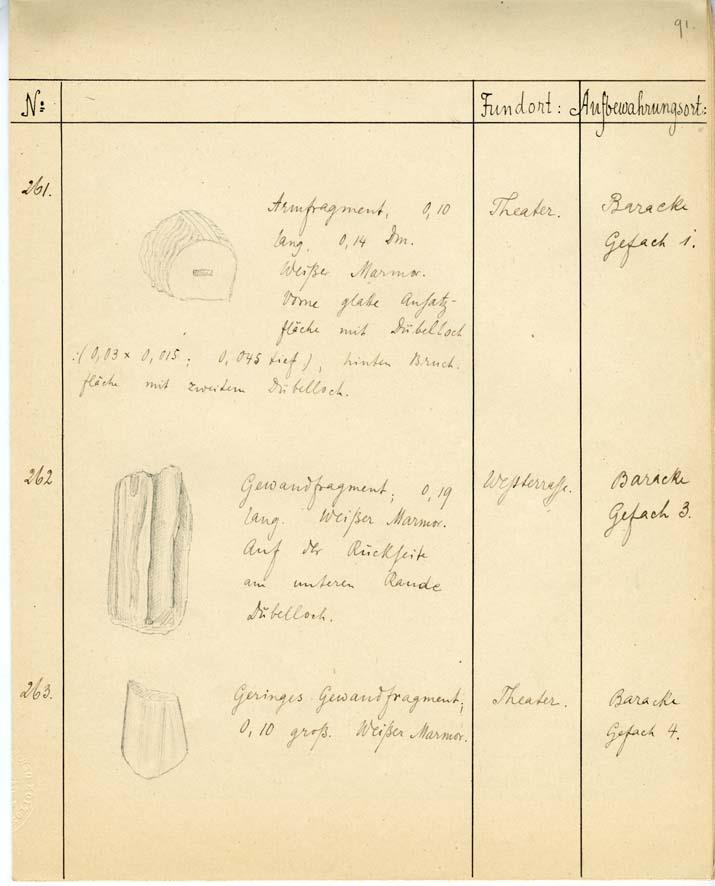 91.
No: Fundort: Aufbewahrungsort:
261.
Armfragment, 0,10
lang. 0,14 Dm.
Weißer Marmor.
Vorne glatte Ansatz-
fläche mit Dübelloch
:(0,03 x 0,015; 0,045 tief), hinten Bruch-
fläche mit zweitem Dübelloch.
Theater.
Baracke
Gefach 1.
262
Gewandfragment; 0,19
lang. Weißer Marmor.
Auf der Rückseite
am unteren Rande
Dübelloch.
Westterrasse.
Baracke
Gefach 3.
263.
Geringes Gewandfragment;
0,10 groß. Weißer Marmor.
Theater.
Baracke
Gefach 4.